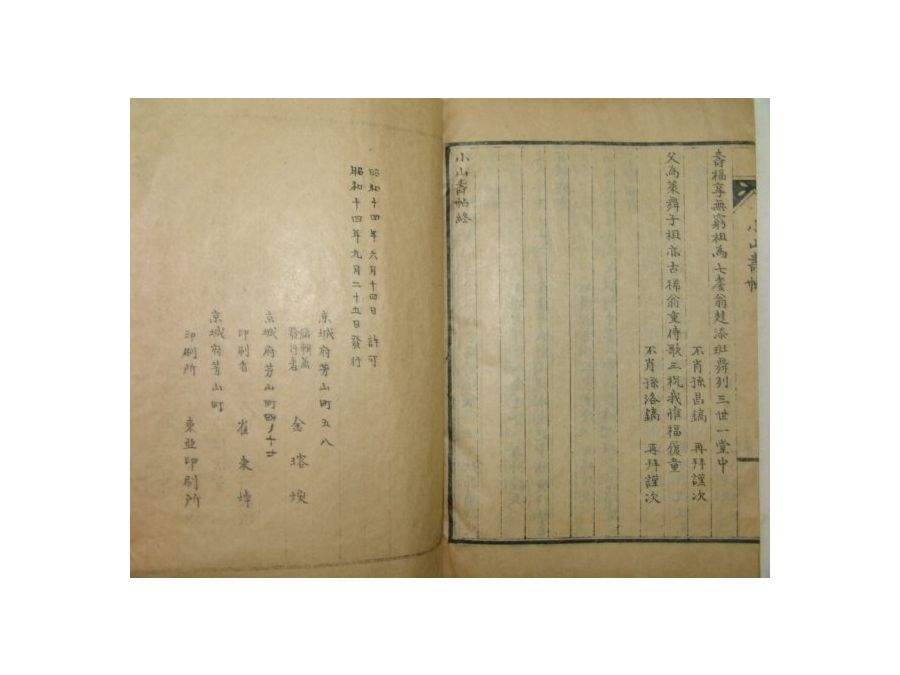 小山壽帖
壽福享無窮祖為七耋翁楚漆斑舞列三世一堂中
不肖孫昌鎬 再拜謹次
父為萊舞子祖亦古稀翁童侍歌三祝我惟福復童
不肖孫洛鎬 再拜謹次
小山壽帖終
昭和十四年六月十四日 許可
昭和十四年九月二十五日發行
京城府芳山町五八
編輯兼
發行者 金瑢煥
京城府芳山町四ノ十七
印刷者 崔東
京城府芳山町
印刷所 東亞印刷所